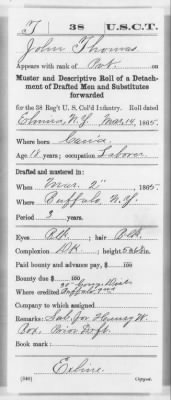 T | 38 | U.S.C.T.
John Thomas
Appears with rank of Pvt. on
Muster and Descriptive Roll of a Detach-
ment of Drafted Men and Substitutes
forwarded
for the 38 Reg't U. S. Col'd Infantry. Roll dated
Elmira, N.Y. Mar. 14, 1865.
Where born
Age 18 years; occupation Laborer
Drafted and mustered in:
When Mar. 2", 1865.
Where Buffalo, N.Y.
Period 3 years.
Eyes Blk.; hair Blk.
Complexion Dk; height 5 ft. in.
Paid bounty and advance pay, $ 100
Bounty due $ 100
30" Cong. Dist.
Where credited Buffalo
Company to which assigned
Remarks: Sub. for Henry W.
Box. Prior Dft.
Book mark:
(340) Copyist.